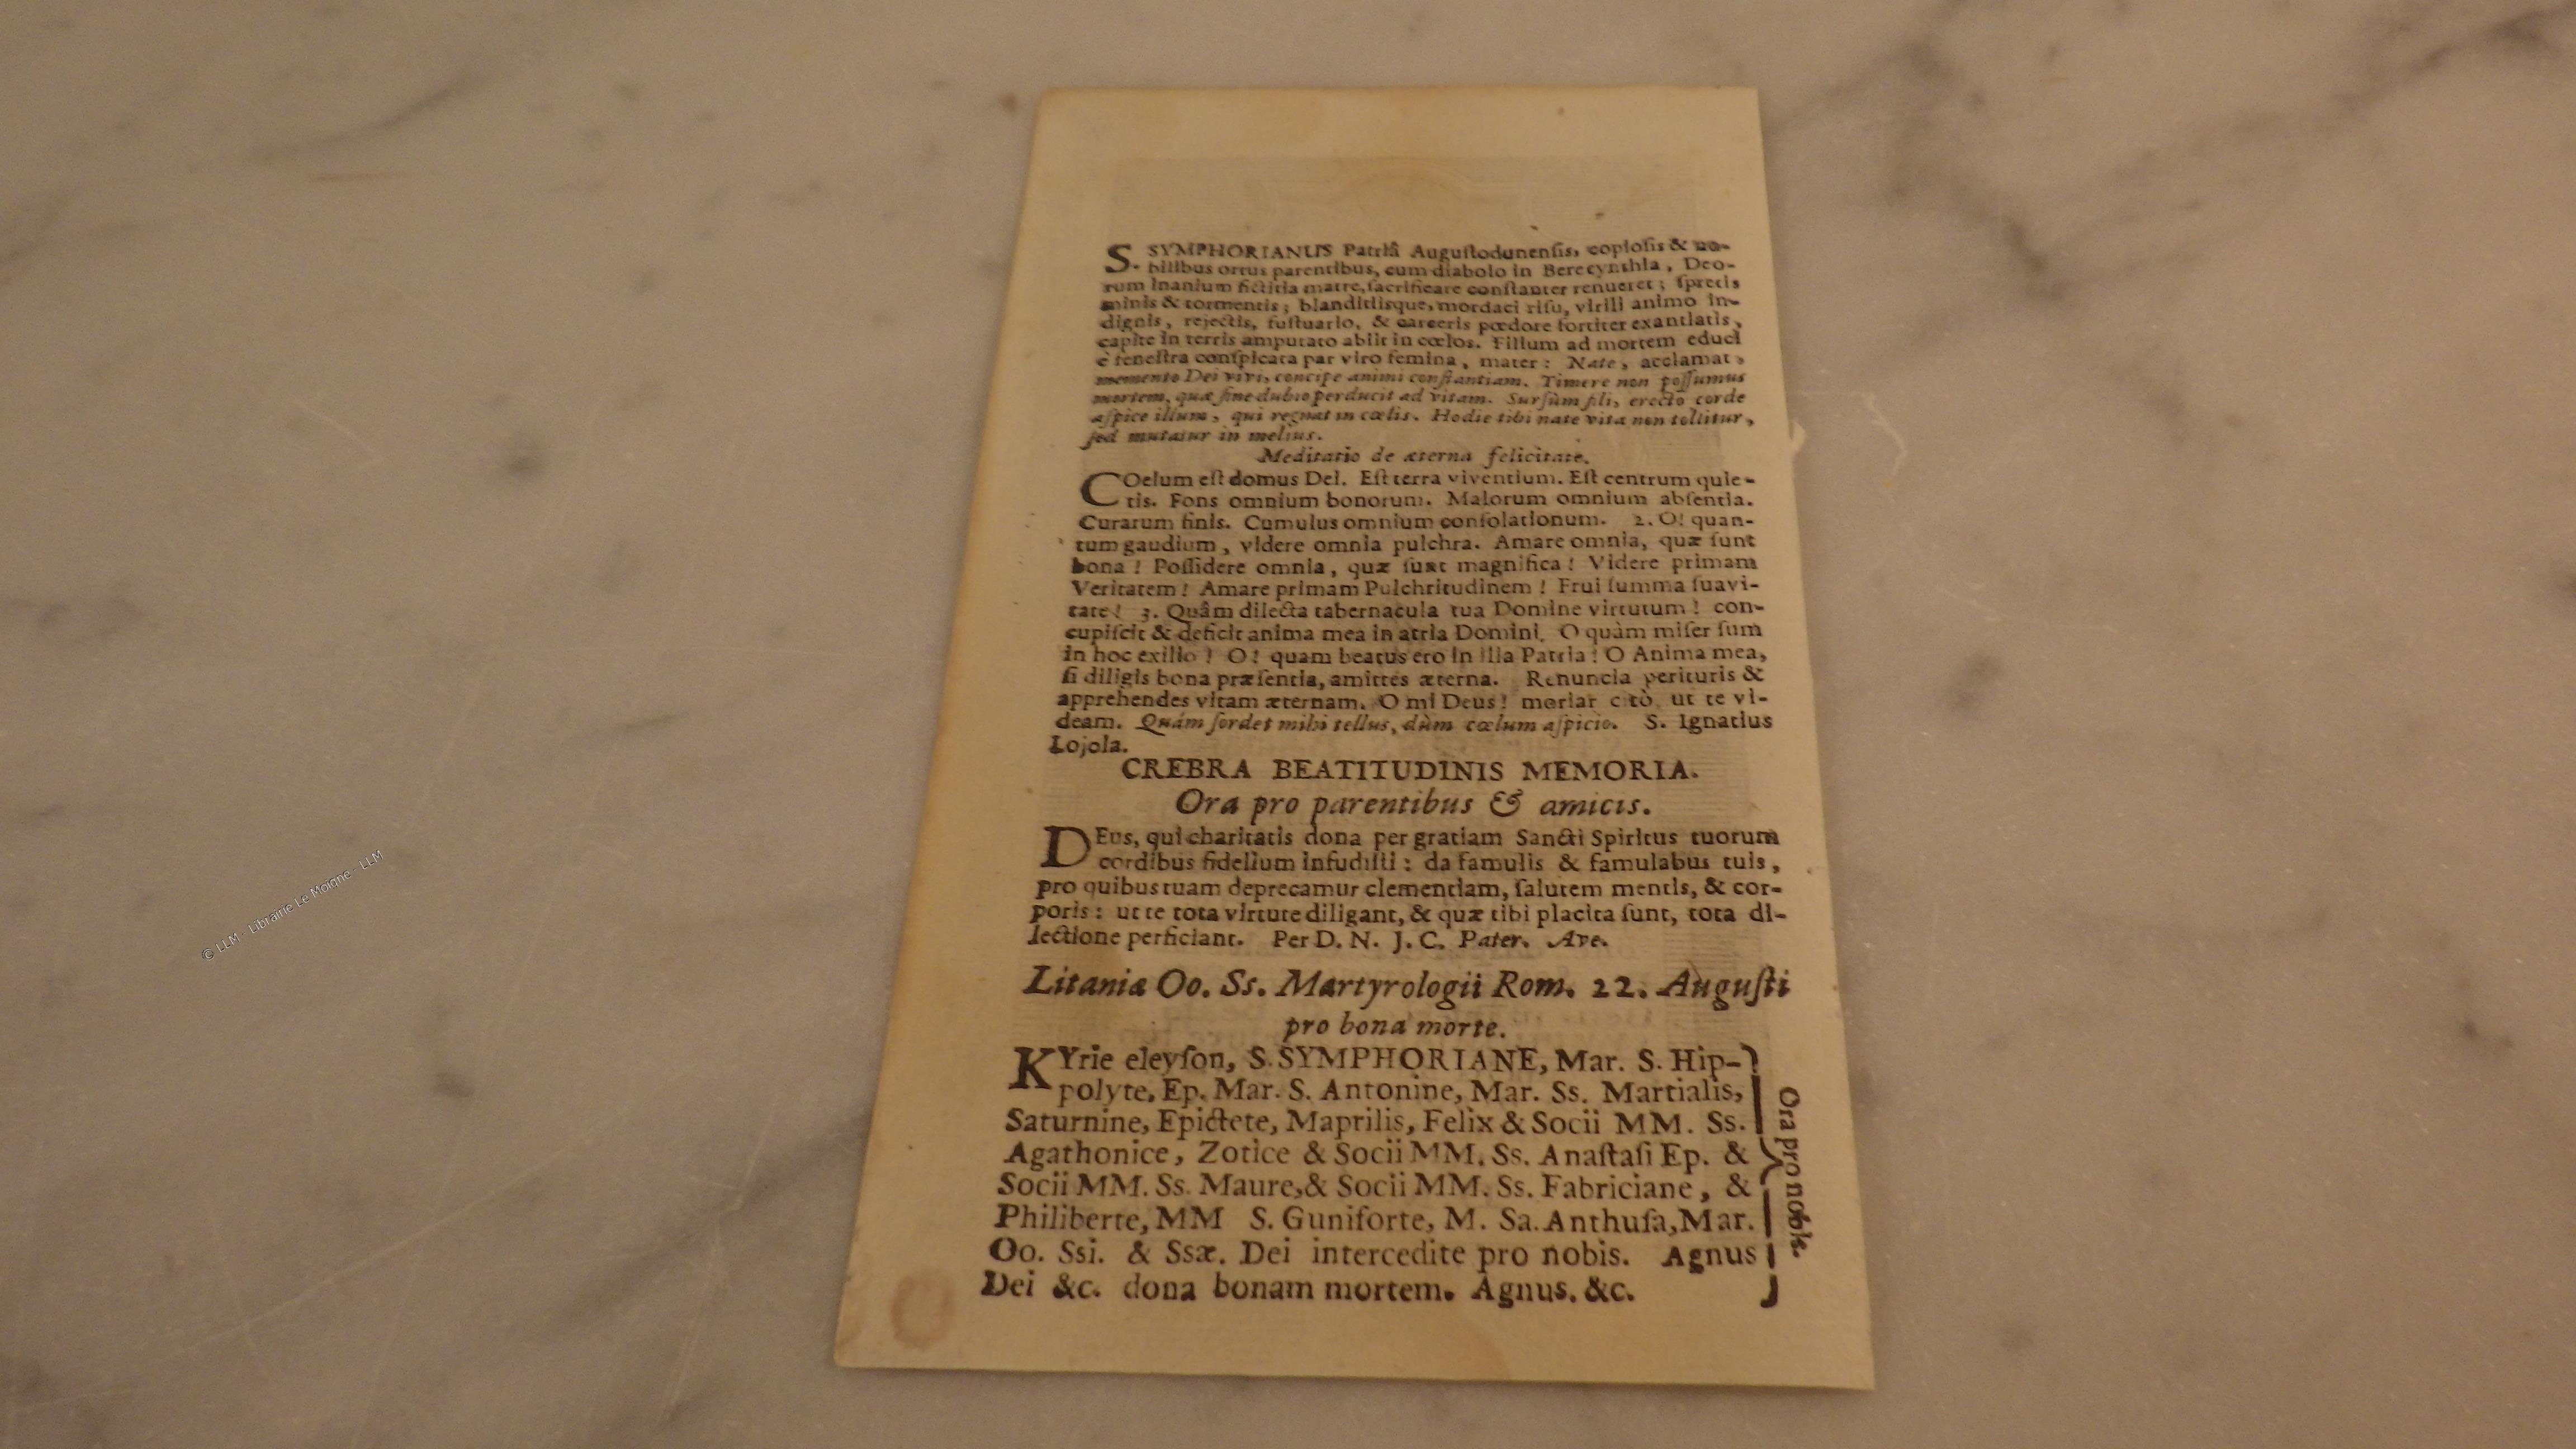 S. SYMPHORIANUS Patriâ Auguſtodunenſis, copioſis & no-
bilibus ortus parentibus, cum diabolo in Berecynthia, Deo-
rum inanium fictitia matre, ſacrificare conſtanter renueret; ſpretis
minis & tormentis; blanditiisque, mordaci riſu, virili animo in-
dignis, rejectis, fuſtuario, & carceris pœdore fortiter exantlatis,
capite in terris amputato abiit in cœlos. Filium ad mortem educi
è feneſtra conſpicata par viro femina, mater: Nate, acclamat,
memento Dei vivi, concipe animi conſtantiam. Timere non poſſumus
mortem, quæ ſine dubio perducit ad vitam. Surſùm fili, erecto corde
aſpice illum, qui regnat in cœlis. Hodie tibi nate vita non tollitur,
ſed mutatur in melius.
Meditatio de æterna felicitate.
COelum eſt domus Dei. Eſt terra viventium. Eſt centrum quie-
tis. Fons omnium bonorum. Malorum omnium abſentia.
Curarum finis. Cumulus omnium conſolationum. 2. O! quan-
tum gaudium, videre omnia pulchra. Amare omnia, quæ ſunt
bona! Poſſidere omnia, quæ ſunt magnifica! Videre primam
Veritatem! Amare primam Pulchritudinem! Frui ſumma ſuavi-
tate! 3. Quâm dilecta tabernacula tua Domine virtutum! con-
cupiſcit & deficit anima mea in atria Domini. O quàm miſer ſum
in hoc exilio! O! quam beatus ero in illa Patria! O Anima mea,
ſi diligis bona præſentia, amittes æterna. Renuncia perituris &
apprehendes vitam æternam. O mi Deus! moriar citò ut te vi-
deam. Quám ſordet mihi tellus, dùm cœlum aſpicio. S. Ignatius
Lojola.
CREBRA BEATITUDINIS MEMORIA.
Ora pro parentibus & amicis.
DEus, qui charitatis dona per gratiam Sancti Spiritus tuorum
cordibus fidelium infudiſti: da famulis & famulabus tuis,
pro quibus tuam deprecamur clementiam, ſalutem mentis, & cor-
poris: ut te tota virtute diligant, & quæ tibi placita ſunt, tota di-
lectione perficiant. Per D. N. J. C. Pater. Ave.
Litaniæ Oo. Ss. Martyrologii Rom. 22. Auguſti
pro bona morte.
KYrie eleyſon, S. SYMPHORIANE, Mar. S. Hip-
polyte, Ep. Mar. S. Antonine, Mar. Ss. Martialis,
Saturnine, Epictete, Maprilis, Felix & Socii MM. Ss.
Agathonice, Zotice & Socii MM. Ss. Anaſtaſi Ep. &
Socii MM. Ss. Maure, & Socii MM. Ss. Fabriciane, &
Philiberte, MM S. Guniforte, M. Sa. Anthuſa, Mar.
Oo. Ssi. & Ssæ. Dei intercedite pro nobis. Agnus
Dei &c. dona bonam mortem. Agnus. &c.
Ora pro nobis.
© LLM - Librairie Le Moigne - LLM